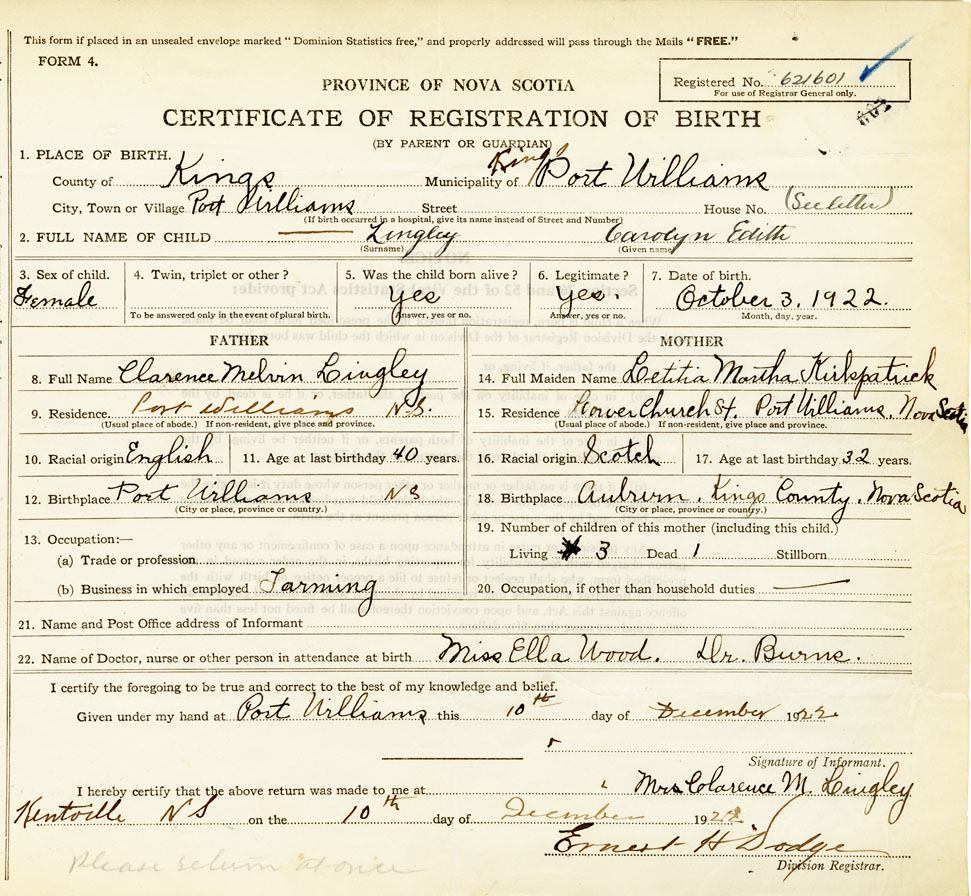 This form if placed in an unsealed envelope marked "Dominion Statistics free," and properly addressed will pass through the Mails "FREE."
FORM 4.
Registered No. 621601
For use of Registrar General only.
PROVINCE OF NOVA SCOTIA
CERTIFICATE OF REGISTRATION OF BIRTH
(BY PARENT OR GUARDIAN)
1. PLACE OF BIRTH.
County of Kings Municipality of Kings Port Williams
City, Town or Village Port Williams Street House No. (See letter)
(If birth occurred in a hospital, give its name instead of Street and Number)
2. FULL NAME OF CHILD Lingley Carolyn Edith
(Surname) (Given name)
3. Sex of child. 4. Twin, triplet or other? 5. Was the child born alive? 6. Legitimate? 7. Date of birth.
Female Yes Yes. October 3, 1922.
To be answered only in the event of plural birth. Answer, yes or no. Answer, yes or no. Month, day, year.
FATHER MOTHER
8. Full Name Clarence Melvin Lingley 14. Full Maiden Name Letitia Martha Kirkpatrick
9. Residence. Port Williams N.S. 15. Residence Lower Church St. Port Williams. Nova Scotia
(Usual place of abode.) If non-resident, give place and province. (Usual place of abode.) If non-resident, give place and province.
10. Racial origin English 11. Age at last birthday 40 years. 16. Racial origin Scotch 17. Age at last birthday 32 years.
12. Birthplace Port Williams NS 18. Birthplace Auburn. Kings County. Nova Scotia
(City or place, province or country.) (City or place, province or country.)
13. Occupation:— 19. Number of children of this mother (including this child.)
(a) Trade or profession Living 3 Dead 1 Stillborn
(b) Business in which employed Farming 20. Occupation, if other than household duties —
21. Name and Post Office address of Informant
22. Name of Doctor, nurse or other person in attendance at birth Miss Ella Wood. Dr. Burns.
I certify the foregoing to be true and correct to the best of my knowledge and belief.
Given under my hand at Port Williams this 10th day of December 1922
Signature of Informant.
I hereby certify that the above return was made to me at Mrs Clarence M. Lingley
Kentville N S on the 10th day of December 1922
Ernest H Dodge
Division Registrar.
Please return at once